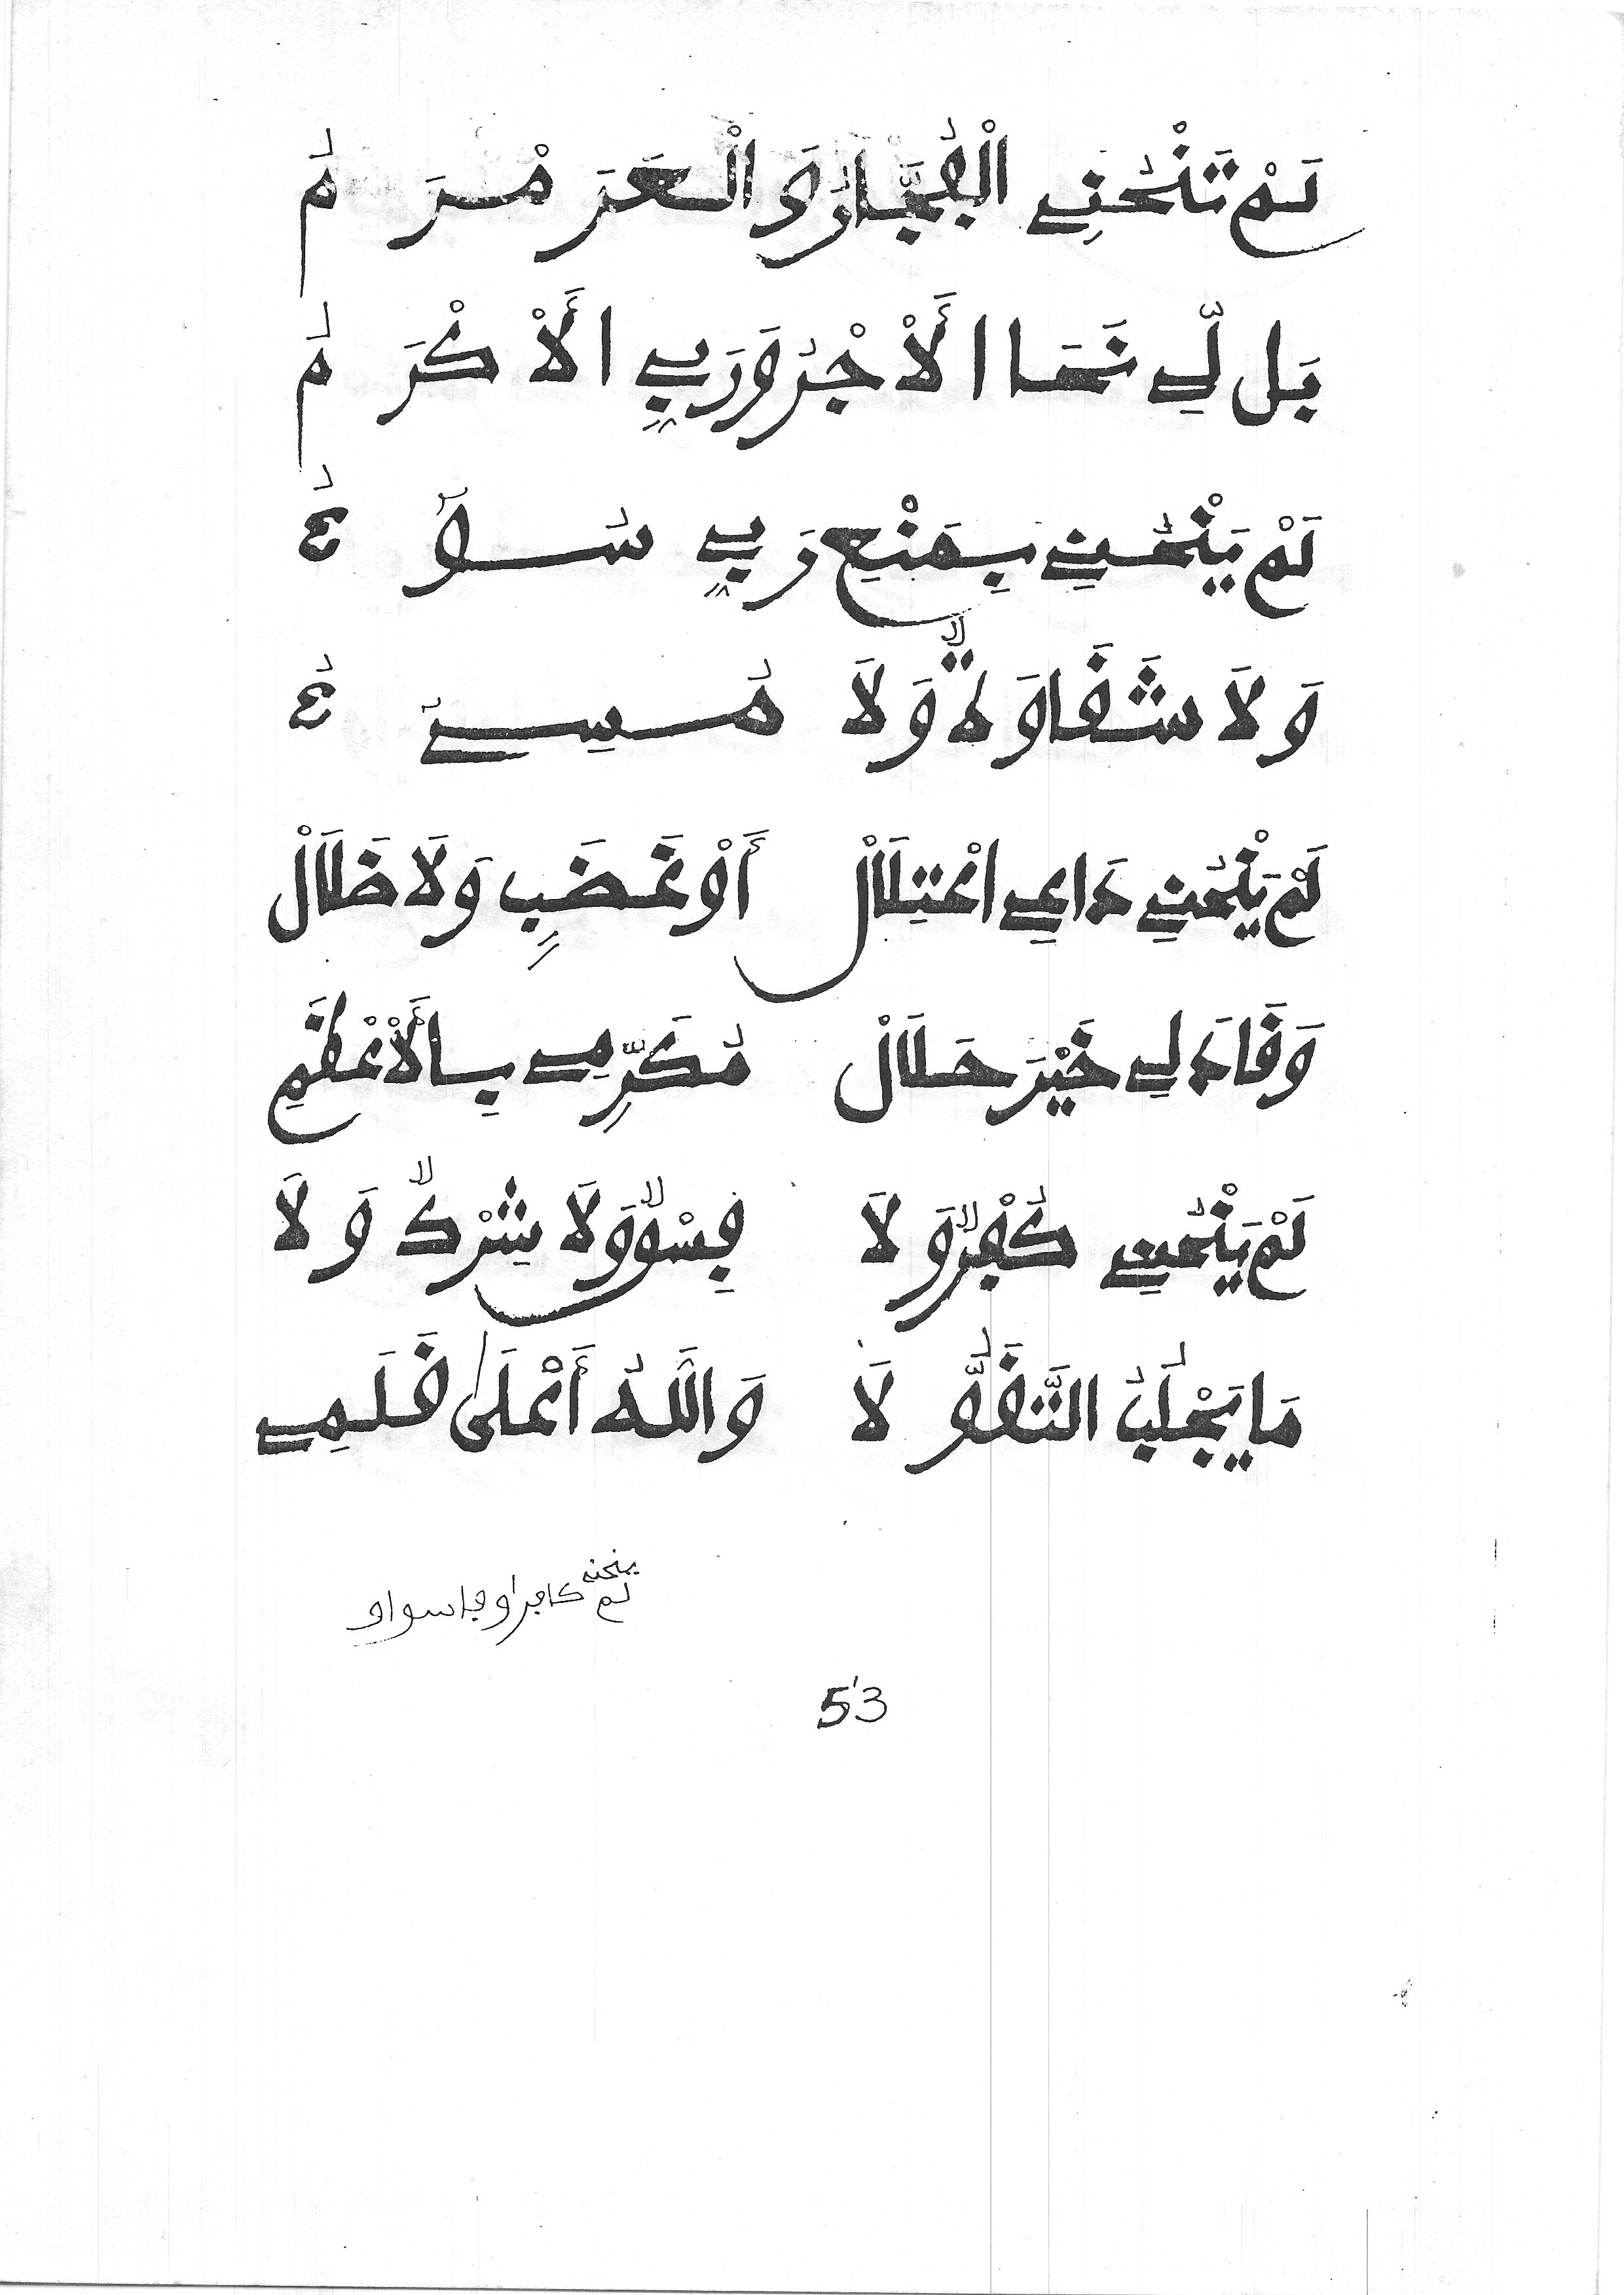 لَمْ تَنْحُنِي الْفُجَّارُ وَالْعَرَمْرَمُ
بَل لِّي نَحَا الْأَجْرُ وَرَبِّي الْأَكْرَمُ
لَمْ يَنْحُنِي بِمَنْعِ رَبِّي سُوٓءُ
وَلَا شَقَاوَةٌ وَلَا مُسِيءُ
لَمْ يَنْحُنِي دَاعِي اعْتِلَالْ أَوْ غَضَبٍ وَلَا ضَلَالْ
وَقَادَ لِي خَيْرَ حَلَالْ مُكَرِّمِي بِالْأَعْظَمِ
لَمْ يَنْحُنِي كُفْرٌ وَلَا فِسْقٌ وَلَا شِرْكٌ وَلَا
مَا يَجْلُبُ التَّقَوُّلَا وَاللَّهُ أَعْلَى قَلَمِي
لم ينحنه كافر او فاسق او
53